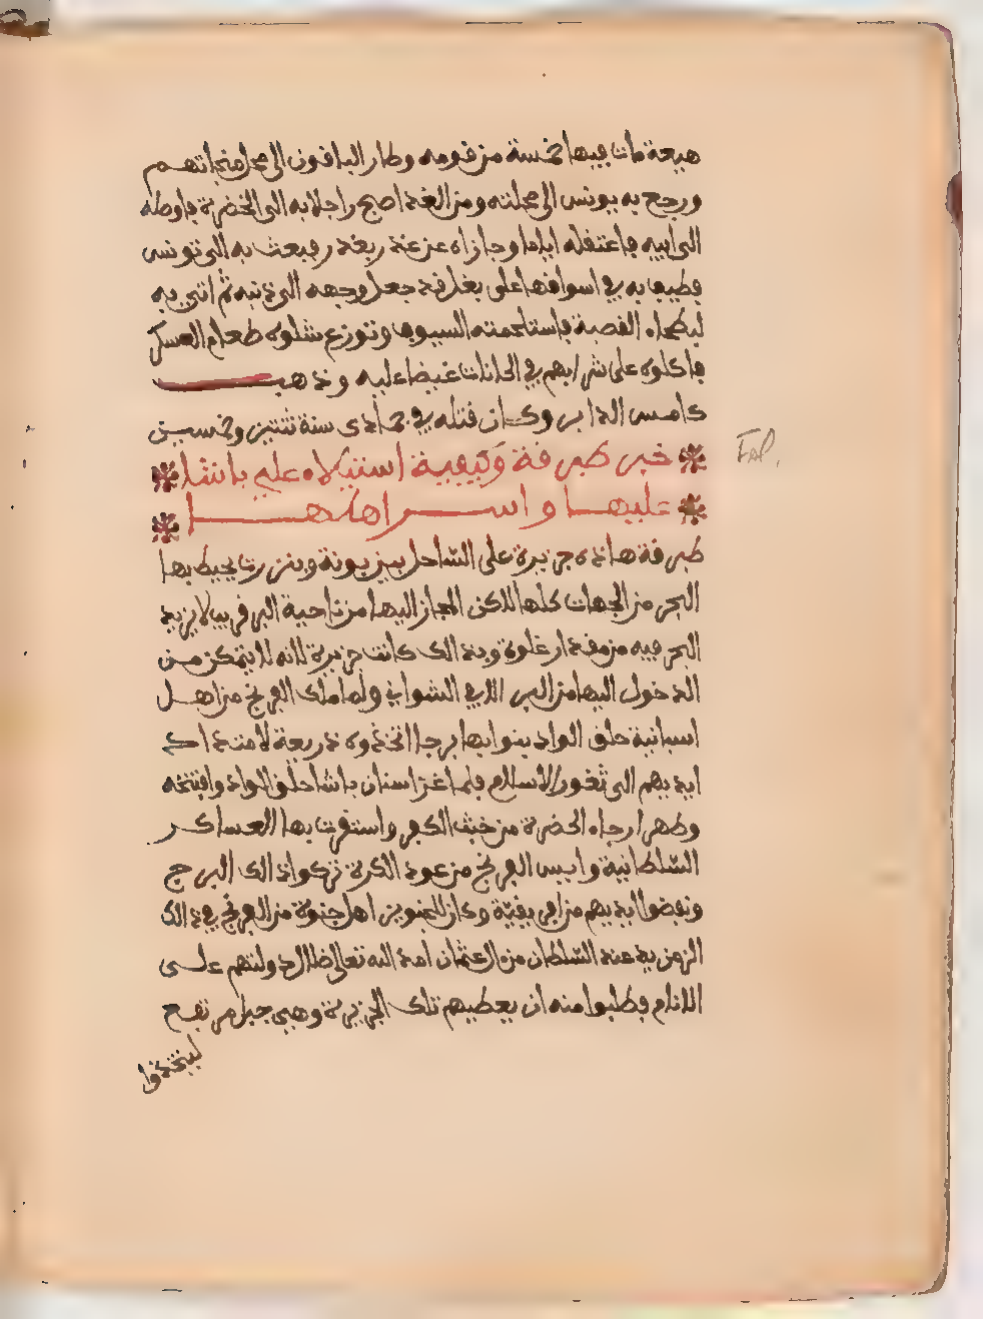 هيعة مات فيها خمسة من قومه وطار الباقون الى محل منجاتهم
ورجع به يونس الى محلته ومن الغد اصبح راحلا به الى الحضرة فاوصله
الى ابيه فاعتقله اياما وجازاه عن غدر بغدر فبعث به الى تونس
فطيف به في اسواقها على بغل قد جعل وجهه الى ذنبه ثم اتى به
لبطحاء القصبة فاستلحمته السيوف وتوزع شلوه طعام العسكر
فاكلوه على شرابهم في الحانات غيضا عليه وذهب
كامس الدابر وكان قتله في جمادى سنة ثنتين وخمسين
خبر طبرقة وكيفية استيلاء علي باشا
عليها واسر اهلها
طبرقة هاذه جزيرة على الساحل بين بونة وبنزرت يحيط بها
البحر من الجهات كلها لاكن المجاز اليها من ناحية البر قريب لا يزيد
البحر فيه من مقدار غلوة وبذلك كانت جزيرة لانه لا يتمكن من
الدخول اليها من البر الا في الشواني ولما ملك الافرنج من اهل
اسبانية حلق الواد بنوا بها برجا اتخذوه ذريعة لامتداد
ايديهم الى ثغور الاسلام فلما غزا سنان باشا حلق الواد وافتتحه
وطهر ارجاء الحضرة من خبث الكفر واستقرت بها العساكر
السلطانية وايس الافرنج من عود الكرة تركوا ذالك البرج
ونفضوا ايديهم من افريقية وكان للجنويز اهل جنوة من الافرنج في ذالك
الزمن يد عند السلطان من ال عثمان امد الله تعالى ظلال دولتهم على
الانام فطلبوا منه ان يعطيهم تلك الجزيرة وهي جبل مرتفع
ليتخذوا
FAP.